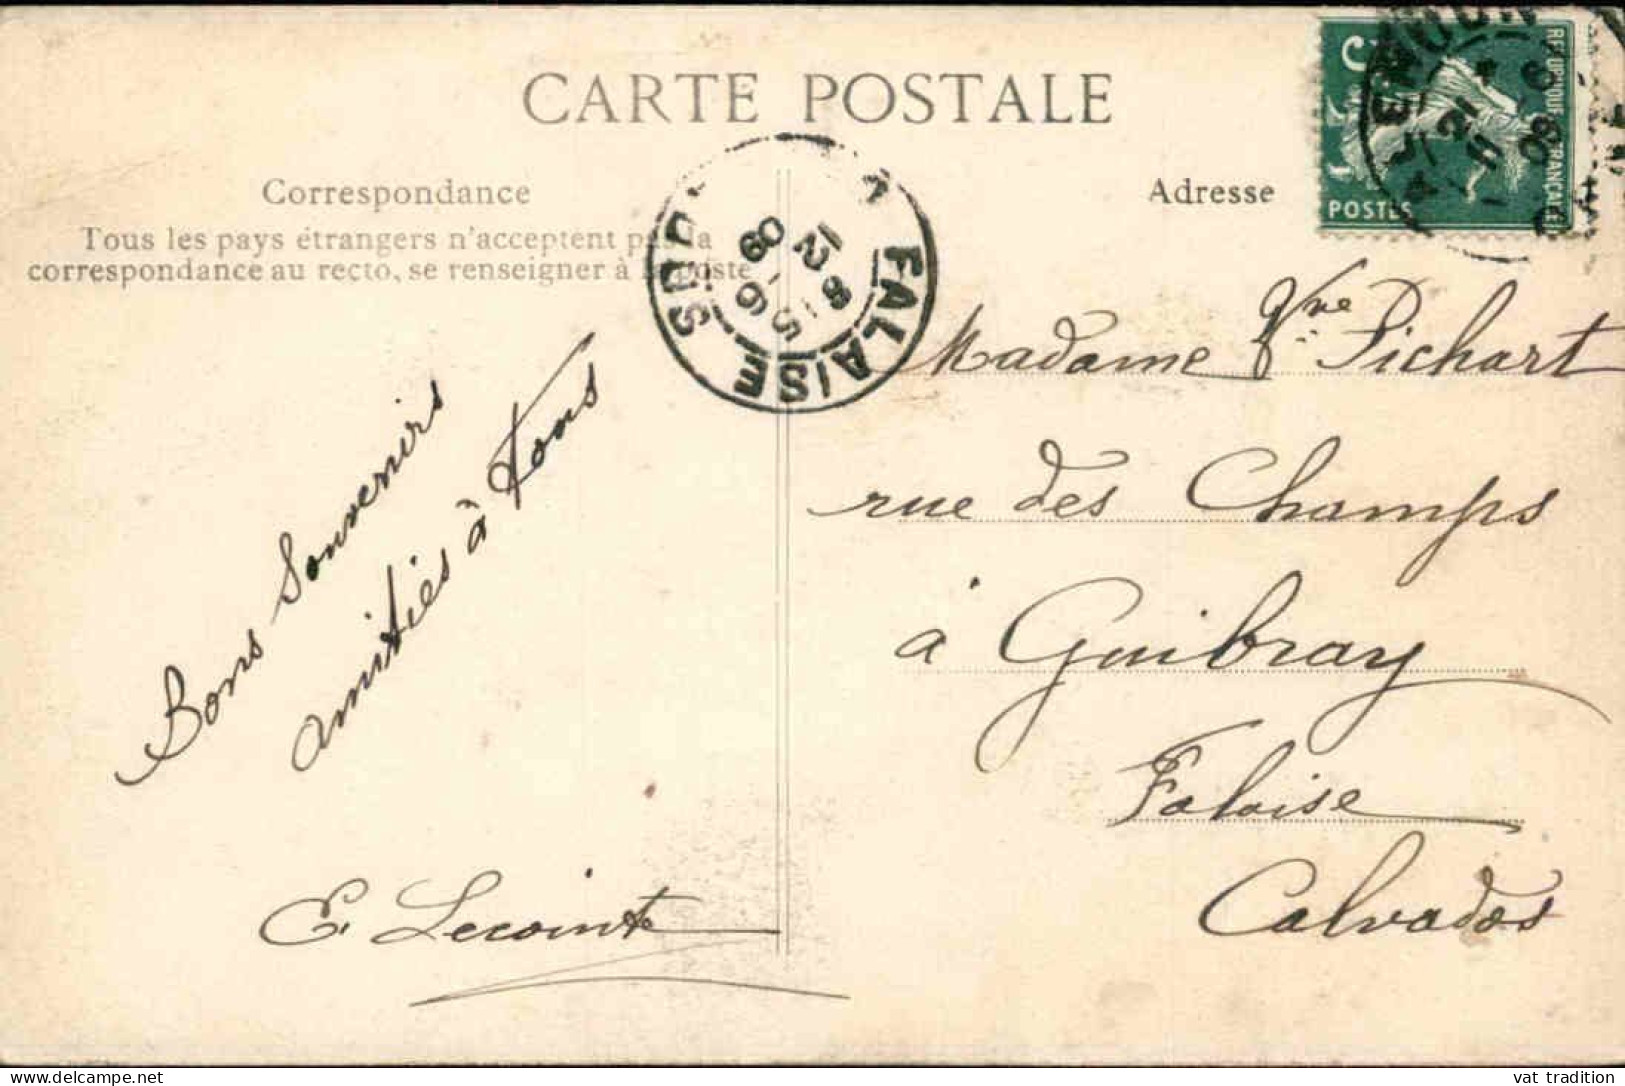 CARTE POSTALE
Correspondance
Tous les pays étrangers n'acceptent pas la
correspondance au recto, se renseigner à la poste
Bons Souvenirs
amitiés à tous
E. Lecointe
Adresse
Madame Vve Pichart
rue des Champs
à Guibray
Falaise
Calvados
FALAISE
12
8 15
6
09
REPUBLIQUE FRANÇAISE
POSTES
5
vat tradition